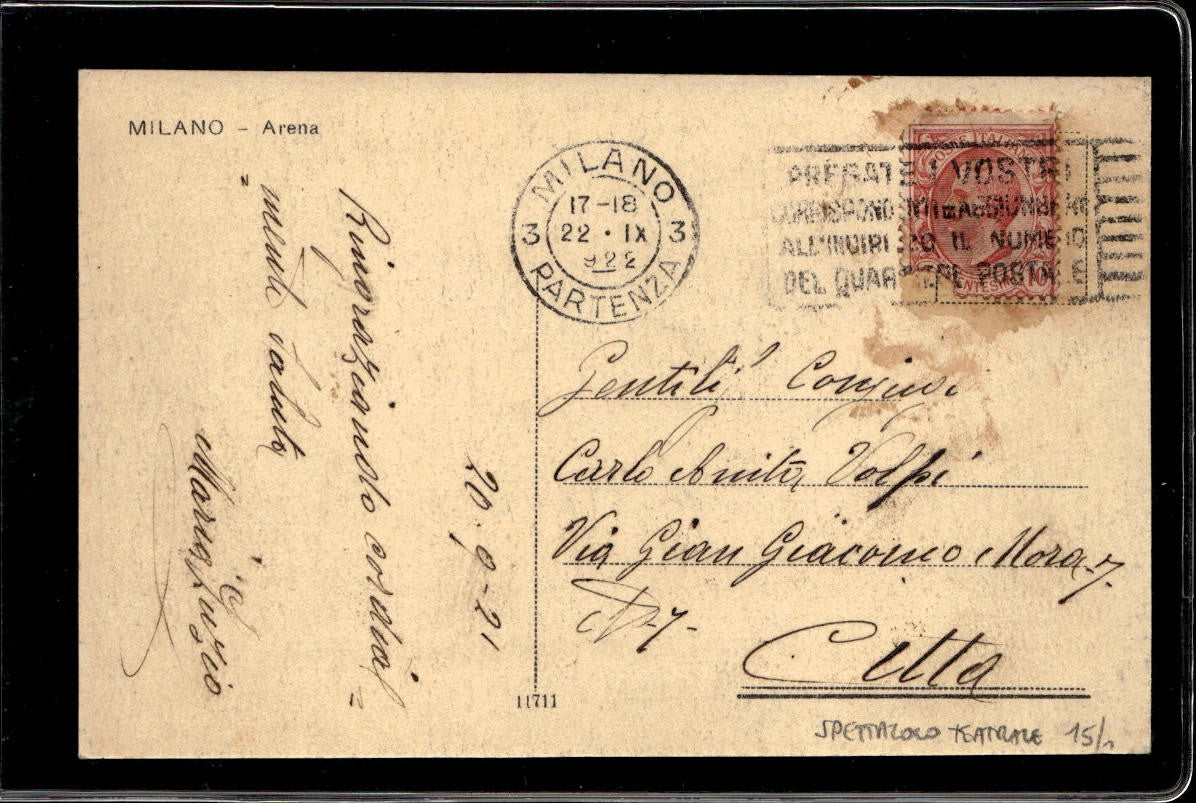 MILANO - Arena
MILANO
17-18
3 22 · IX 3
922
PARTENZA
POSTE ITALIANE
PREGATE I VOSTRI
CORRISPONDENTI AGGIUNGERE
ALL'INDIRIZZO IL NUMERO
DEL QUARTIERE POSTALE
CENTESIMI 10
Ringraziando cordial=
=mente saluto
Maria e Luzio
20-9-21
Gentili Coniugi
Carlo Anita Volpi
Via Gian Giacomo Mora 7
Città
11711
SPETTACOLO TEATRALE 15/1